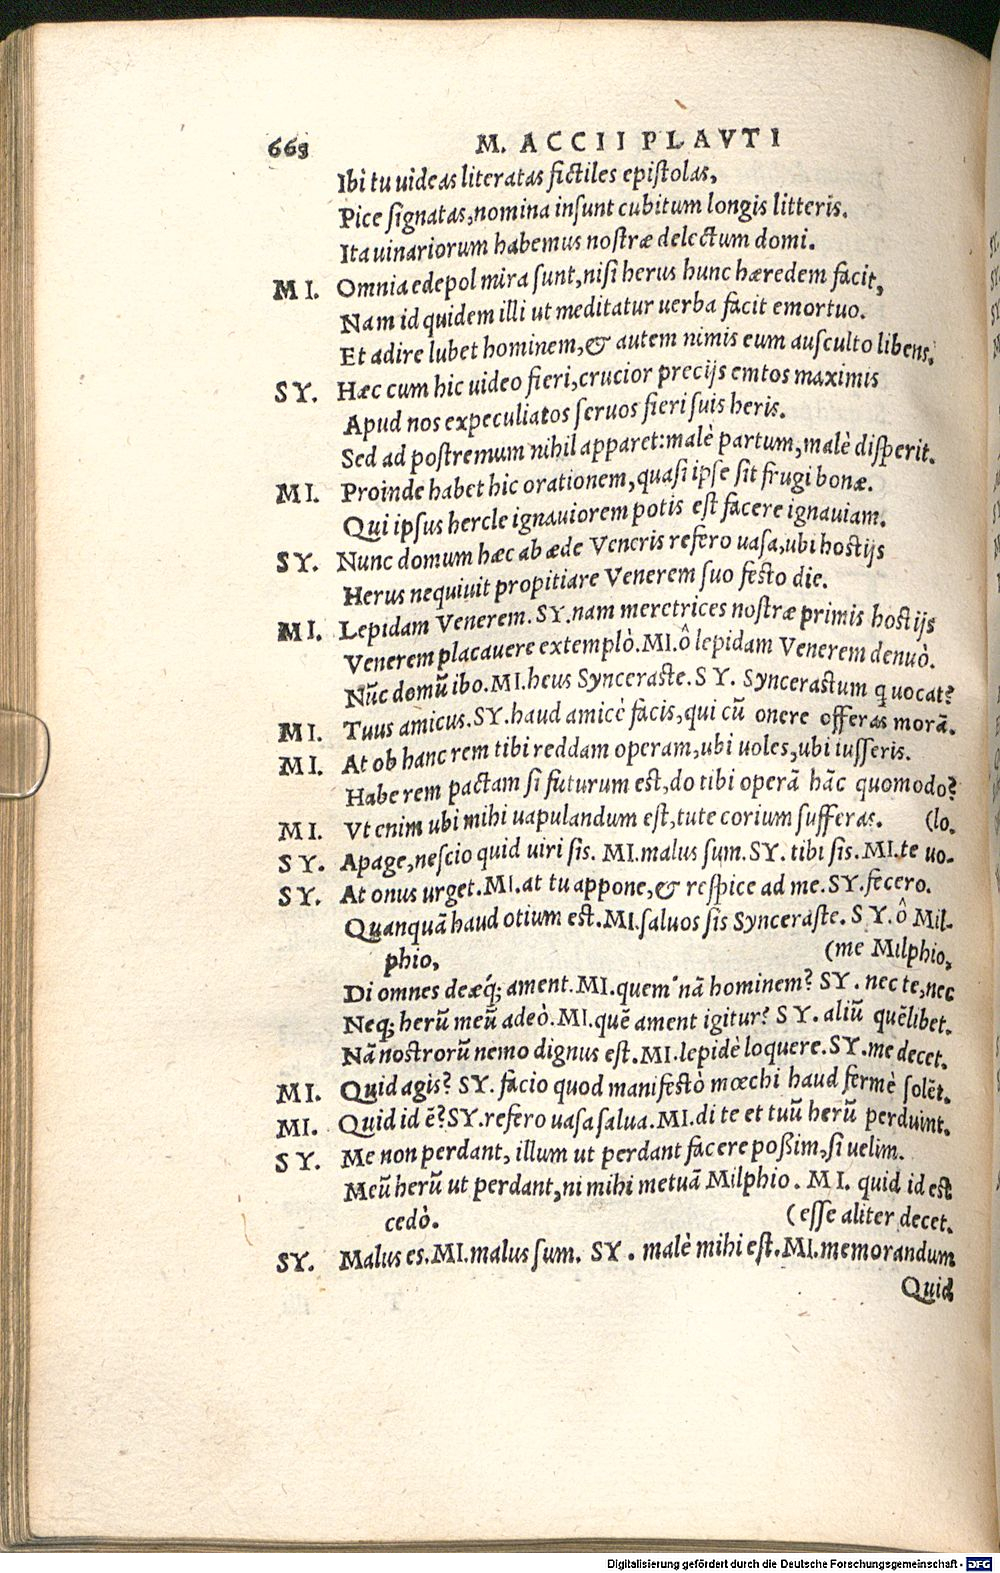 663 M. ACCII PLAVTI
Ibi tu uideas literatas fictiles epistolas,
Pice signatas, nomina insunt cubitum longis litteris.
Ita uinariorum habemus nostræ delectum domi.
MI. Omnia edepol mira sunt, nisi herus hunc hæredem facit,
Nam id quidem illi ut meditatur uerba facit emortuo.
Et adire lubet hominem, & autem nimis eum ausculto libens.
SY. Hæc cum hic uideo fieri, crucior precijs emtos maximis
Apud nos expeculiatos seruos fieri suis heris.
Sed ad postremum nihil apparet: malè partum, malè disperit.
MI. Proinde habet hic orationem, quasi ipse sit frugi bonæ.
Qui ipsus hercle ignauiorem potis est facere ignauiam.
SY. Nunc domum hæc ab æde Veneris refero uasa, ubi hostijs
Herus nequiuit propitiare Venerem suo festo die.
MI. Lepidam Venerem. SY. nam meretrices nostræ primis hostijs
Venerem placauere extemplò. MI. ô lepidam Venerem denuò.
Nũc domũ ibo. MI. heus Synceraste. SY. Syncerastum q uocat?
MI. Tuus amicus. SY. haud amicè facis, qui cũ onere offeras morã.
MI. At ob hanc rem tibi reddam operam, ubi uoles, ubi iusseris.
Habe rem pactam si futurum est, do tibi operã hãc quomodo?
MI. Vt enim ubi mihi uapulandum est, tute corium sufferas. (lo.
SY. Apage, nescio quid uiri sis. MI. malus sum. SY. tibi sis. MI. te uo-
SY. At onus urget. MI. at tu appone, & respice ad me. SY. fecero.
Quanquã haud otium est. MI. saluos sis Synceraste. SY. ô Mil-
phio, (me Milphio,
Di omnes deæq́; ament. MI. quem nã hominem? SY. nec te, nec
Neq; herũ meũ adeò. MI. quẽ ament igitur? SY. aliũ quẽlibet.
Nã nostrorũ nemo dignus est. MI. lepidè loquere. SY. me decet.
MI. Quid agis? SY. facio quod manifestò mœchi haud fermè solẽt.
MI. Quid id ẽ? SY. refero uasa salua. MI. di te et tuũ herũ perduint.
SY. Me non perdant, illum ut perdant facere poßim, si uelim.
Meũ herũ ut perdant, ni mihi metuã Milphio. MI. quid id est
cedò. (esse aliter decet.
SY. Malus es. MI. malus sum. SY. malè mihi est. MI. memorandum
Quid
Digitalisierung gefördert durch die Deutsche Forschungsgemeinschaft - DFG